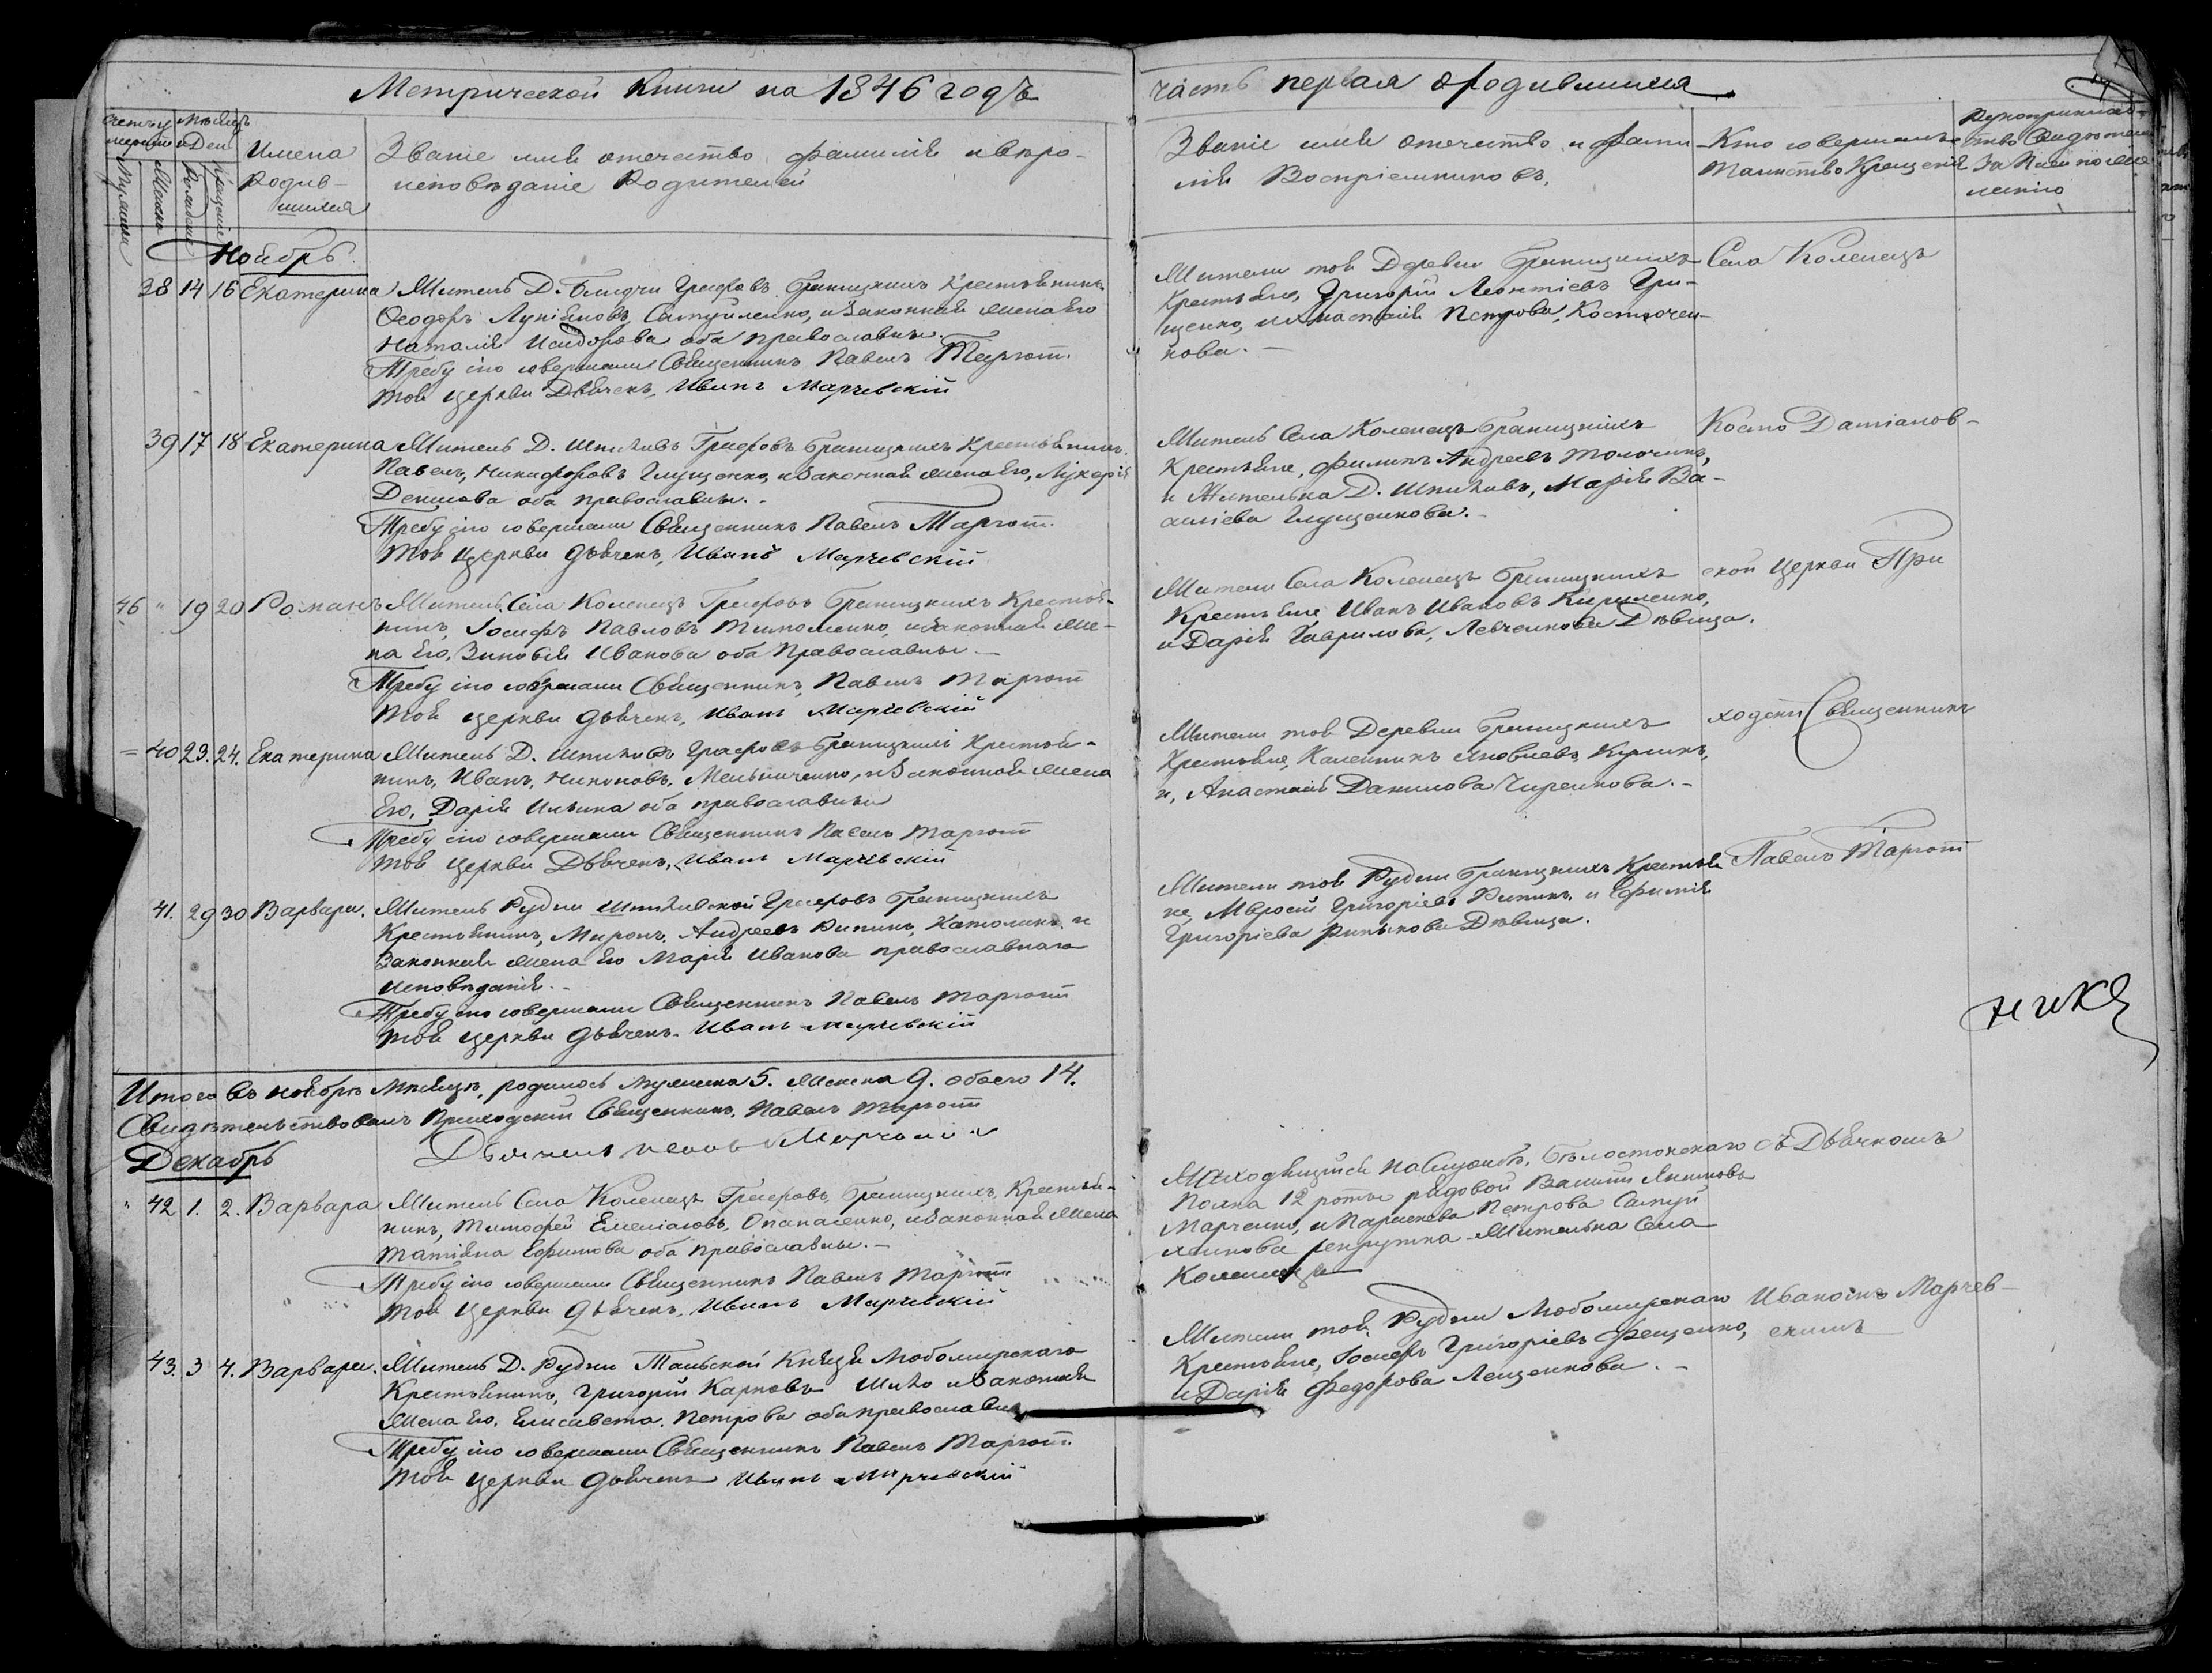 Метрической Книги на 1846 годъ
часть первая о родившихся
Счетъ у
Мѣсяцъ
и День
Мужеска
Женска
Рожденіе
Крещеніе
Имена
Родив-
шихся
Званіе имя отечество фамилія и вѣро-
исповѣданіе Родителей
Званіе имя отечество и фами-
лія Воспріемниковъ,
Кто совершалъ
таинство Крещенія
Рукоприклад-
ство Свидѣтелей
за писи по же-
ланію
Ноябрь
38 14 16 Екатерина Житель Д. Графовъ Браницкихъ Крестьянинъ
Ѳеодоръ Лукіяновъ, Самуйленко, и Законная жена Его
Наталія Исидорова оба православны.
Требу сію совершали Священникъ Павелъ Таргот.
той церкви Дьячекъ, Иванъ Марчевскій
Жители той Деревни Браницкихъ
Крестьяне, Григорій Леонтіевъ Гри-
щенко, и Анастасія Петрова, Косточен-
кова. —
Села Коленецъ
39 17 18 Екатерина Житель Д. Шпилівъ Графовъ Браницкихъ Крестьянинъ
Павелъ, Никифоровъ Глущенко, и Законная жена Его, Лукерія
Денисова оба православны.
Требу сію совершали Священникъ Павелъ Таргот.
той Церкви дьячекъ, Иванъ Марчевскій
Житель Села Коленецъ Браницкихъ
Крестьяне, Филипъ Андреевъ Толочинъ,
и Жителька Д. Шпилівъ, Марія Ва-
силіева Глущенкова. -
Космо Даміанов-
46 " 19 20 Романъ Житель Села Коленецъ Графовъ Браницкихъ Крестья-
нинъ, Іосифъ Павловъ Тимошенко, и Законная же-
на Его, Зиновія Иванова оба Православны —
Требу сію совершали Священникъ Павелъ Таргот
той церкви дьячекъ, Иванъ Марчевскій
Жители Села Коленецъ Браницкихъ
Крестьяне Иванъ Ивановъ Кириленко,
и Дарія Гаврилова, Левченкова Дѣвица.
ской Церкви При
= 40 23. 24. Екатерина Житель Д. Шпилівъ Графовъ Браницкихъ Крестья-
нинъ, Иванъ, Никоновъ, Мельниченко, и Законная жена
Его, Дарія Ильина оба православны
Требу сію совершали Священникъ Павелъ Таргот
той Церкви Дьячекъ, Иванъ Марчевскій
Жители той Деревни Браницкихъ
Крестьяне, Калениикъ Яковлевъ,
и, Анастасія Данилова Чиренкова. -
ходскій Священникъ
41. 29 30 Варвара. Житель Рудни Шпилівской Графовъ Браницкихъ
Крестьянинъ, Миронъ, Андреевъ Рипинъ, Католикъ, и
Законная жена Его Марія Иванова православнаго
исповѣданія. -
Требу сію совершали Священникъ Павелъ Таргот
той церкви дьячекъ. Иванъ Марчевскій
Жители той Рудни Браницкихъ Крестья
не, Григоріевъ Рипинъ, и Ефимія
Григоріева Рипькова Дѣвица.
Павелъ Таргот
Итого въ ноябрѣ Мѣсяцѣ, родилось мужеска 5. Женска 9. обоего 14.
Свидѣтельствовалъ Приходскій Священникъ, Павелъ Таргот
Дьячекъ
Декабрь
" 42 1. 2. Варвара Житель Села Коленецъ Графовъ Браницкихъ, Крестья-
нинъ, Тимофей Емеліановъ, Опанасенко, и Законная Жена
Татіяна Ефимова оба православны. —
Требу сію совершали Священникъ Павелъ Таргот
той Церкви Дьячекъ, Иванъ Марчевскій
Находящійся на Службѣ, Бѣлостокскаго
Полка 12 роты рядовой Василій Якимовъ
Марченко, и Параскева Петрова Самуй
ленкова рекрутка Жителька Села
Коленецъ
съ Дьячкомъ
43. 3 4. Варвара. Житель Д. Рудни Тальской Князя Любомирскаго
Крестьянинъ, Григорій Карповъ Шило и Законная
Жена Его, Елисавета, Петрова оба православны
Требу сію совершали Священникъ Павелъ Таргот.
той церкви дьячекъ Иванъ Марчевскій
Жители той, Рудни Любомирскаго
Крестьяне, Іосифъ Григоріевъ Фещенко,
и Дарія Федорова Лещенкова. -
Иваномъ Марчев-
скимъ